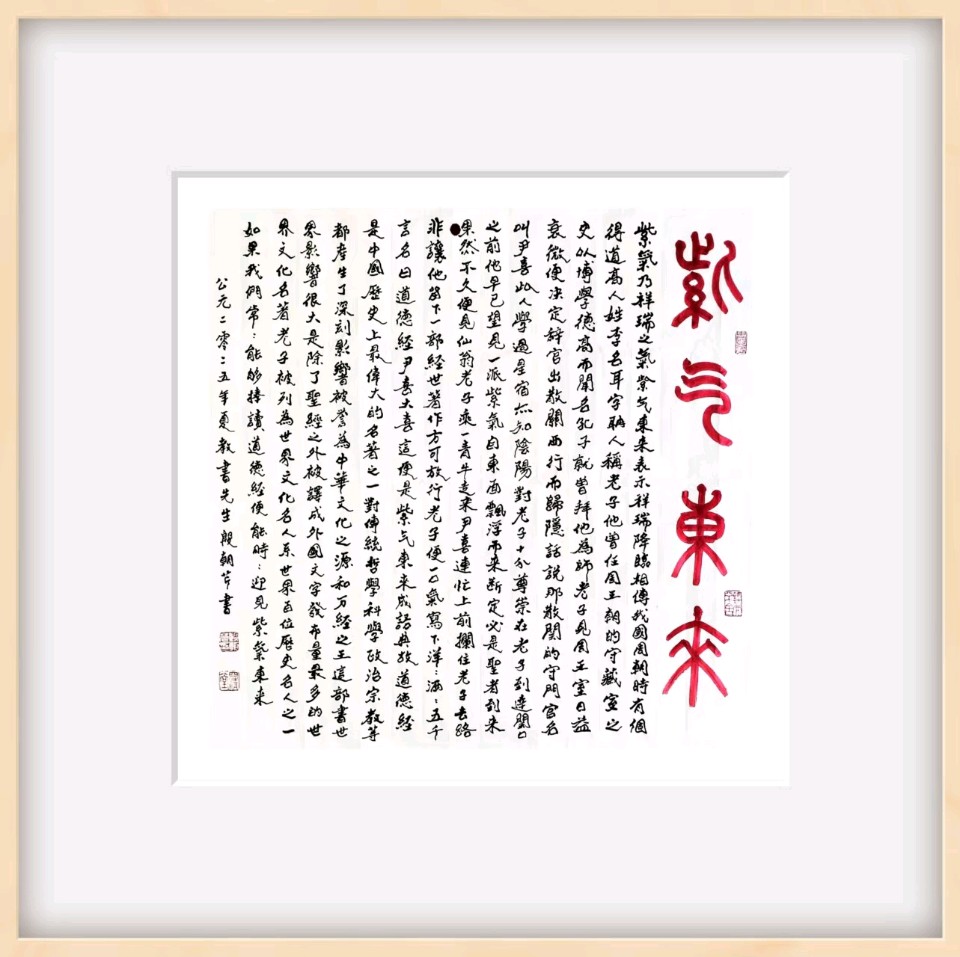 紫气東来
紫氣乃祥瑞之氣紫气東来表示祥瑞降臨相傳我國周朝時有個
得道高人姓李名耳字聃人稱老子他曾任周王朝的守藏室之
史以博學德高而聞名孔子就曾拜他為師老子見周王室日益
衰微便决定辞官出散關西行而歸隱話說那散関的守門官名
叫尹喜此人學過星宿亦知陰陽對老子十分尊崇在老子到達関口
之前他早已望見一派紫氣自東面飄浮而来断定必是聖者到来
果然不久便見仙翁老子乘一青牛走来尹喜連忙上前攔住老子去路
非讓他留下一部經世著作方可放行老子便一口氣寫下洋：洒：五千
言名曰道德經尹喜大喜這便是紫气東来成語典故道德經
是中國歷史上最偉大的名著之一對傳統哲學科學政治宗教等
都産生了深刻影響被誉為中華文化之源和万經之王這部書世
界影響很大是除了聖經之外被譯成外國文字發布量最多的世
界文化名著老子被列為世界文化名人系世界百位歷史名人之一
如果我們常：能够捧讀道德經便能時：迎見紫氣東来
公元二零二五年夏教書先生殷朝芹書